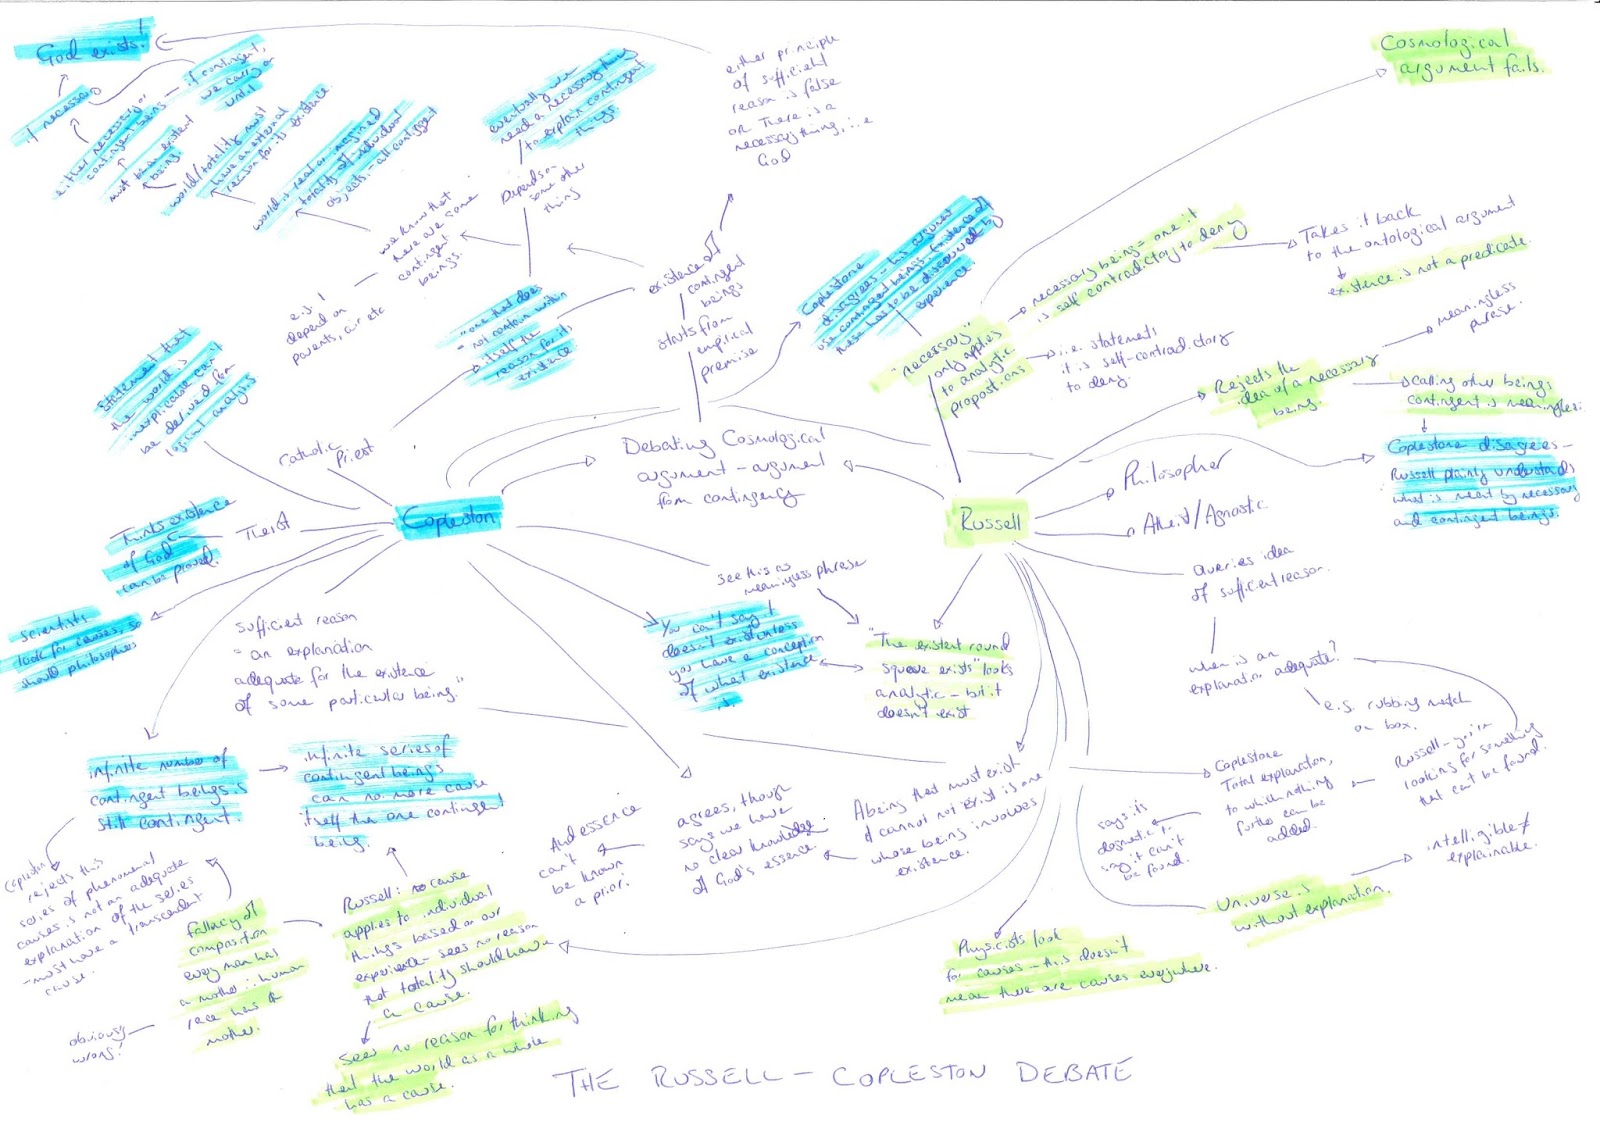 God exists!
if necessary
either necessary or
contingent beings — if contingent,
we carry on
until
must be an existent
being.
world/totality must
have an external
reason for its existence.
world is real or imagined
totality of individual
objects - all contingent
we know that
there are some
contingent
beings.
e.g. I
depend on
parents, air etc
eventually we
need a necessary thing
to explain contingent
things.
Depends on
some other
thing
"one that does
not contain within
itself the
reason for its
existence
existence of
contingent
beings
starts from
empirical
premise
either principle
of sufficient
reason is false
or there is a
necessary thing, i.e
God
Copplestone
disagrees - his argument
use contingent beings. Existence of
these has to be discovered by
experience.
Cosmological
argument fails.
necessary being = one it
is self contradictory to deny
Takes it back
to the ontological argument
existence is not a predicate.
"necessary"
only applies
to analytic
propositions
i.e. statements
it is self-contradictory
to deny.
Rejects the
idea of a necessary
being.
meaningless
phrase.
calling other beings
contingent is meaningless.
Coplestone disagrees -
Russell plainly understands
what is meant by necessary
and contingent beings.
Statement that
the world is
inexplicable can't
be derived from
logical analysis
Catholic
Priest
Debating Cosmological
argument - argument
from contingency
Copleston
Russell
Philosopher
Atheist/Agnostic
Theist
Thinks existence
of God
can be proved.
scientists
look for causes, so
should philosophers
sufficient reason
= an explanation
adequate for the existence
of some particular being."
see this as
meaningless phrase
You can't say it
doesn't exist unless
you have a conception
of what existence
is.
"The existent round
square exists" looks
analytic - but it
doesn't exist
Queries idea
of sufficient reason.
when is an
explanation adequate?
e.g. rubbing match
on box.
Russell - you're
looking for something
that can't be found.
Coplestone
Total explanation,
to which nothing
further can be
added.
says its
dogmatic to
say it can't
be found.
Universe is
without explanation.
intelligible ≠
explainable.
infinite number of
contingent beings is
still contingent.
infinite series of
contingent beings
can no more cause
itself than one contingent
being.
Copleston
rejects this
series of phenomenal
causes is not an adequate
explanation of the series
- must have a transcendent
cause.
fallacy of
composition
every man has
a mother ∴ human
race has a
mother.
obviously
wrong!
Russell: no cause
applies to individual
things based on our
experience - sees no reason
that totality should have
a cause.
Sees no reason for thinking
that the world as a whole
has a cause.
And essence
can't
be known
a priori.
agrees, though
says we have
no clear knowledge
of God's essence.
A being that must exist
& cannot not exist is one
whose being involves
existence.
Physicists look
for causes - this doesn't
mean there are causes everywhere.
THE RUSSELL - COPLESTON DEBATE